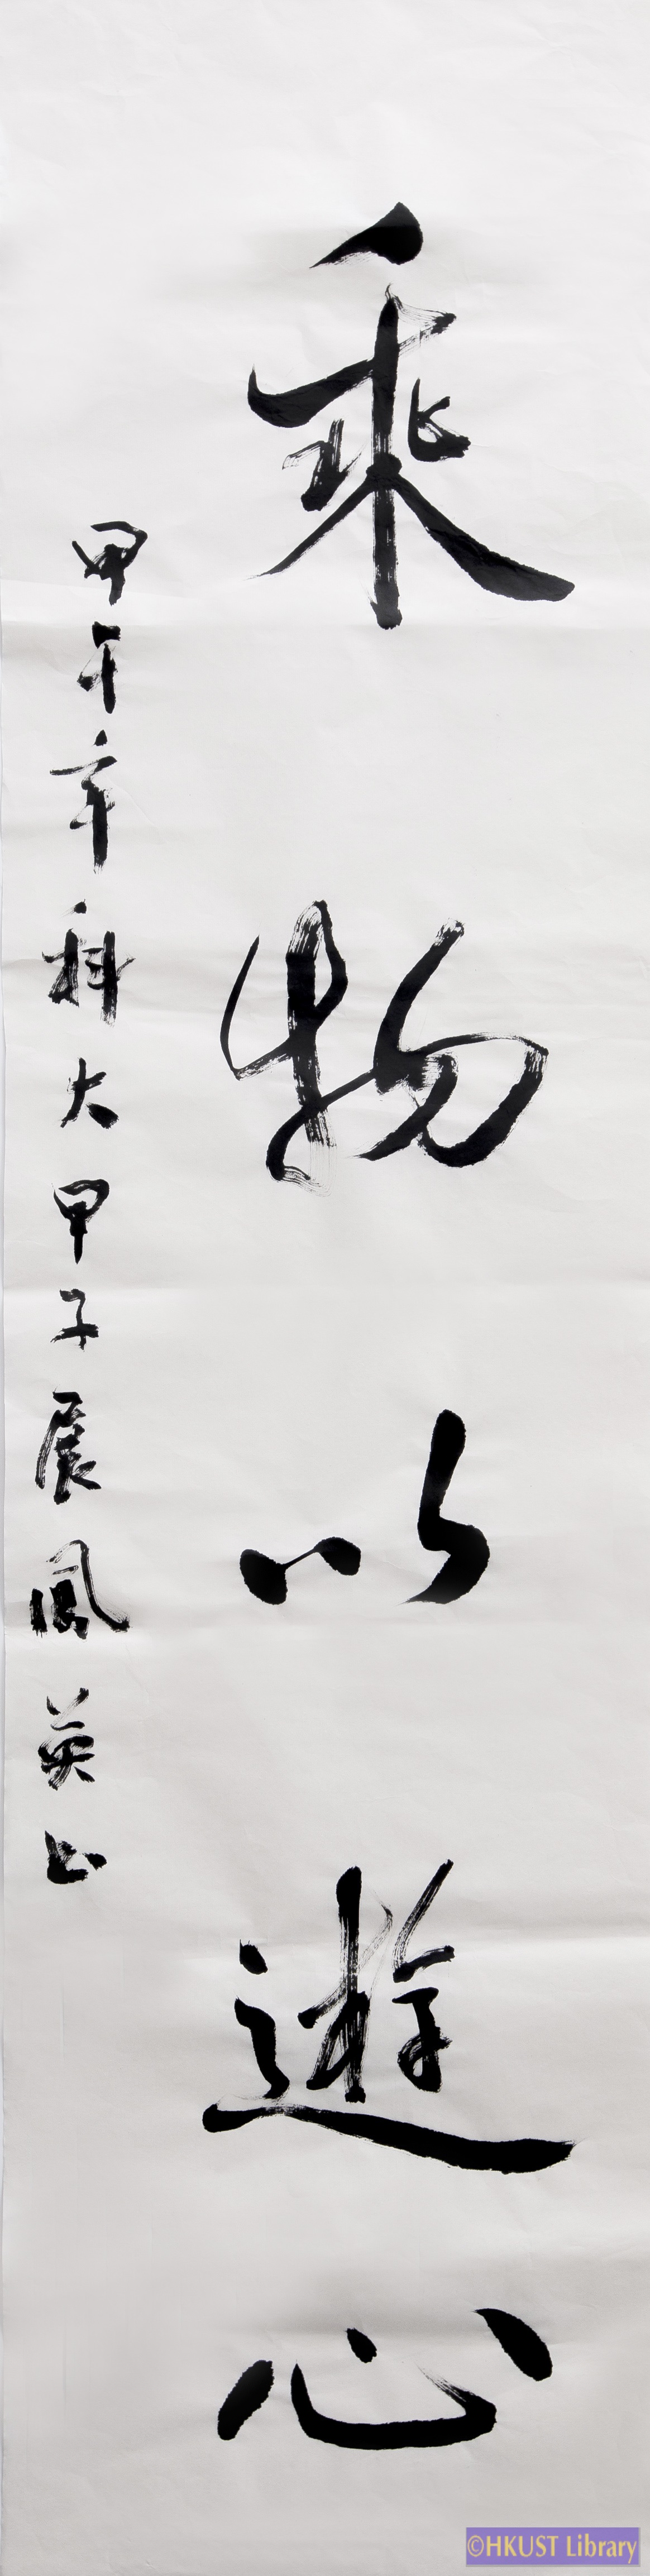 乘物以遊心
甲午年科大甲子展鳳英書
©HKUST Library